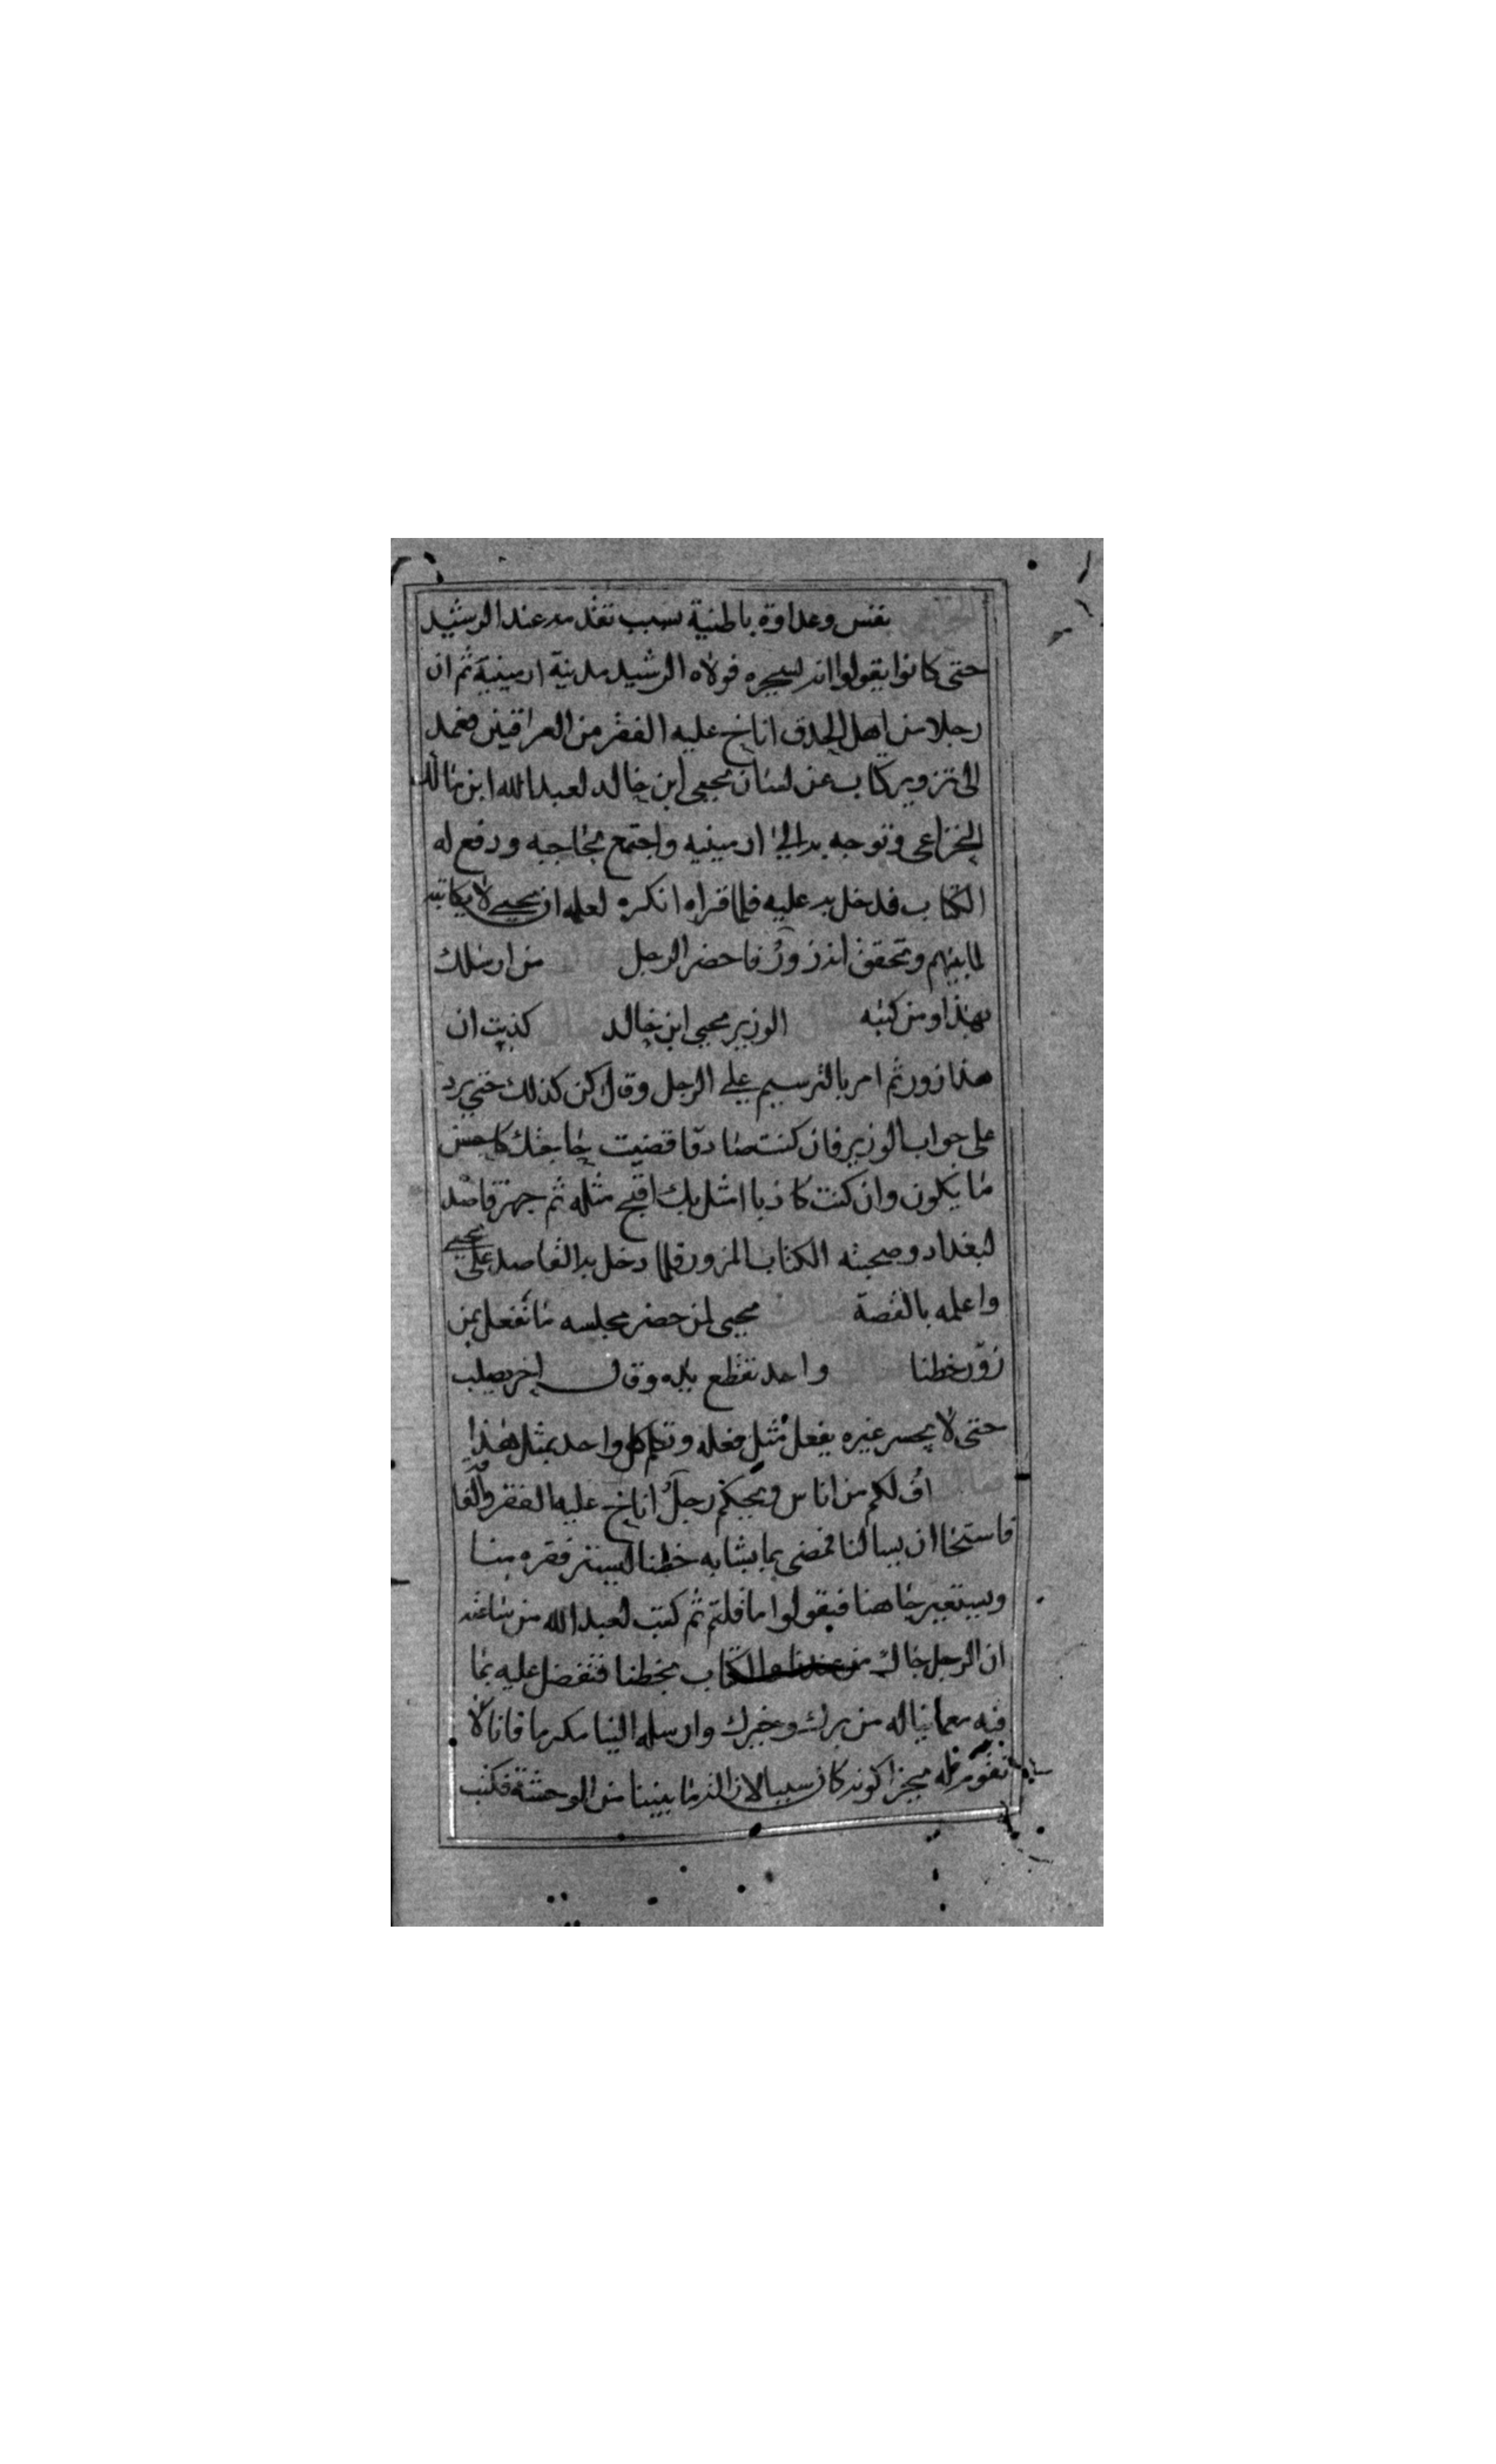 الخزاعي نفس وعداوة باطنية بسبب تقدمه عند الرشيد
حتى كانوا يقولوا انه لسحره فولاه الرشيد مدينة ارمينية ثم ان
رجلا من اهل الحدق اناخ عليه الفقر من العراقين فعمد
الى تزوير كتاب عن لسان يحيى ابن خالد لعبد الله ابن مالك
الخزاعي وتوجه به الى ارمينيه واجتمع بحاجبه ودفع له
الكتاب فدخل به عليه فلما قراه انكره لعلمه ان يحيى لا يكاتبه
لما بينهم وتحقق انه زور فاحضر الرجل من ارسلك
بهذا ومن كتبه الوزير يحيى ابن خالد كذبت ان
هذا زور ثم امر بالترسيم على الرجل وقال كن كذلك حتى يرد
على جواب الوزير فان كنت صادقا قضيت حاجتك كاحسن
ما يكون وان كنت كاذبا امثل بك اقبح مثله ثم جهز قاصد
لبغداد وصحبته الكتاب المزور فلما دخل به القاصد على يحيى
واعلمه بالقصة يحيى لمن حضر مجلسه ما نفعل بمن
زور خطنا واحد تقطع يده وقال اخر يصلب
حتى لا يجسر غيره يفعل مثل فعله وتكلم كل واحد بمثل هذا
فقال اف لكم من اناس ويحكم رجل اناخ عليه الفقر والفاقة
فاستحا ان يسالنا فمضى بما يشابه خطنا ليستر فقره منا
ويستعير جاهنا فيقولوا ما قلتم ثم كتب لعبد الله من ساعته
ان الرجل جاك من عندنا والكتاب بخطنا فتفضل عليه بما
فيه معما نياله من برك وخيرك وارسله الينا مكرما فانا لا
نقوم له كونه كان سببا لان الذ ما بيننا من الوحشة فكتب